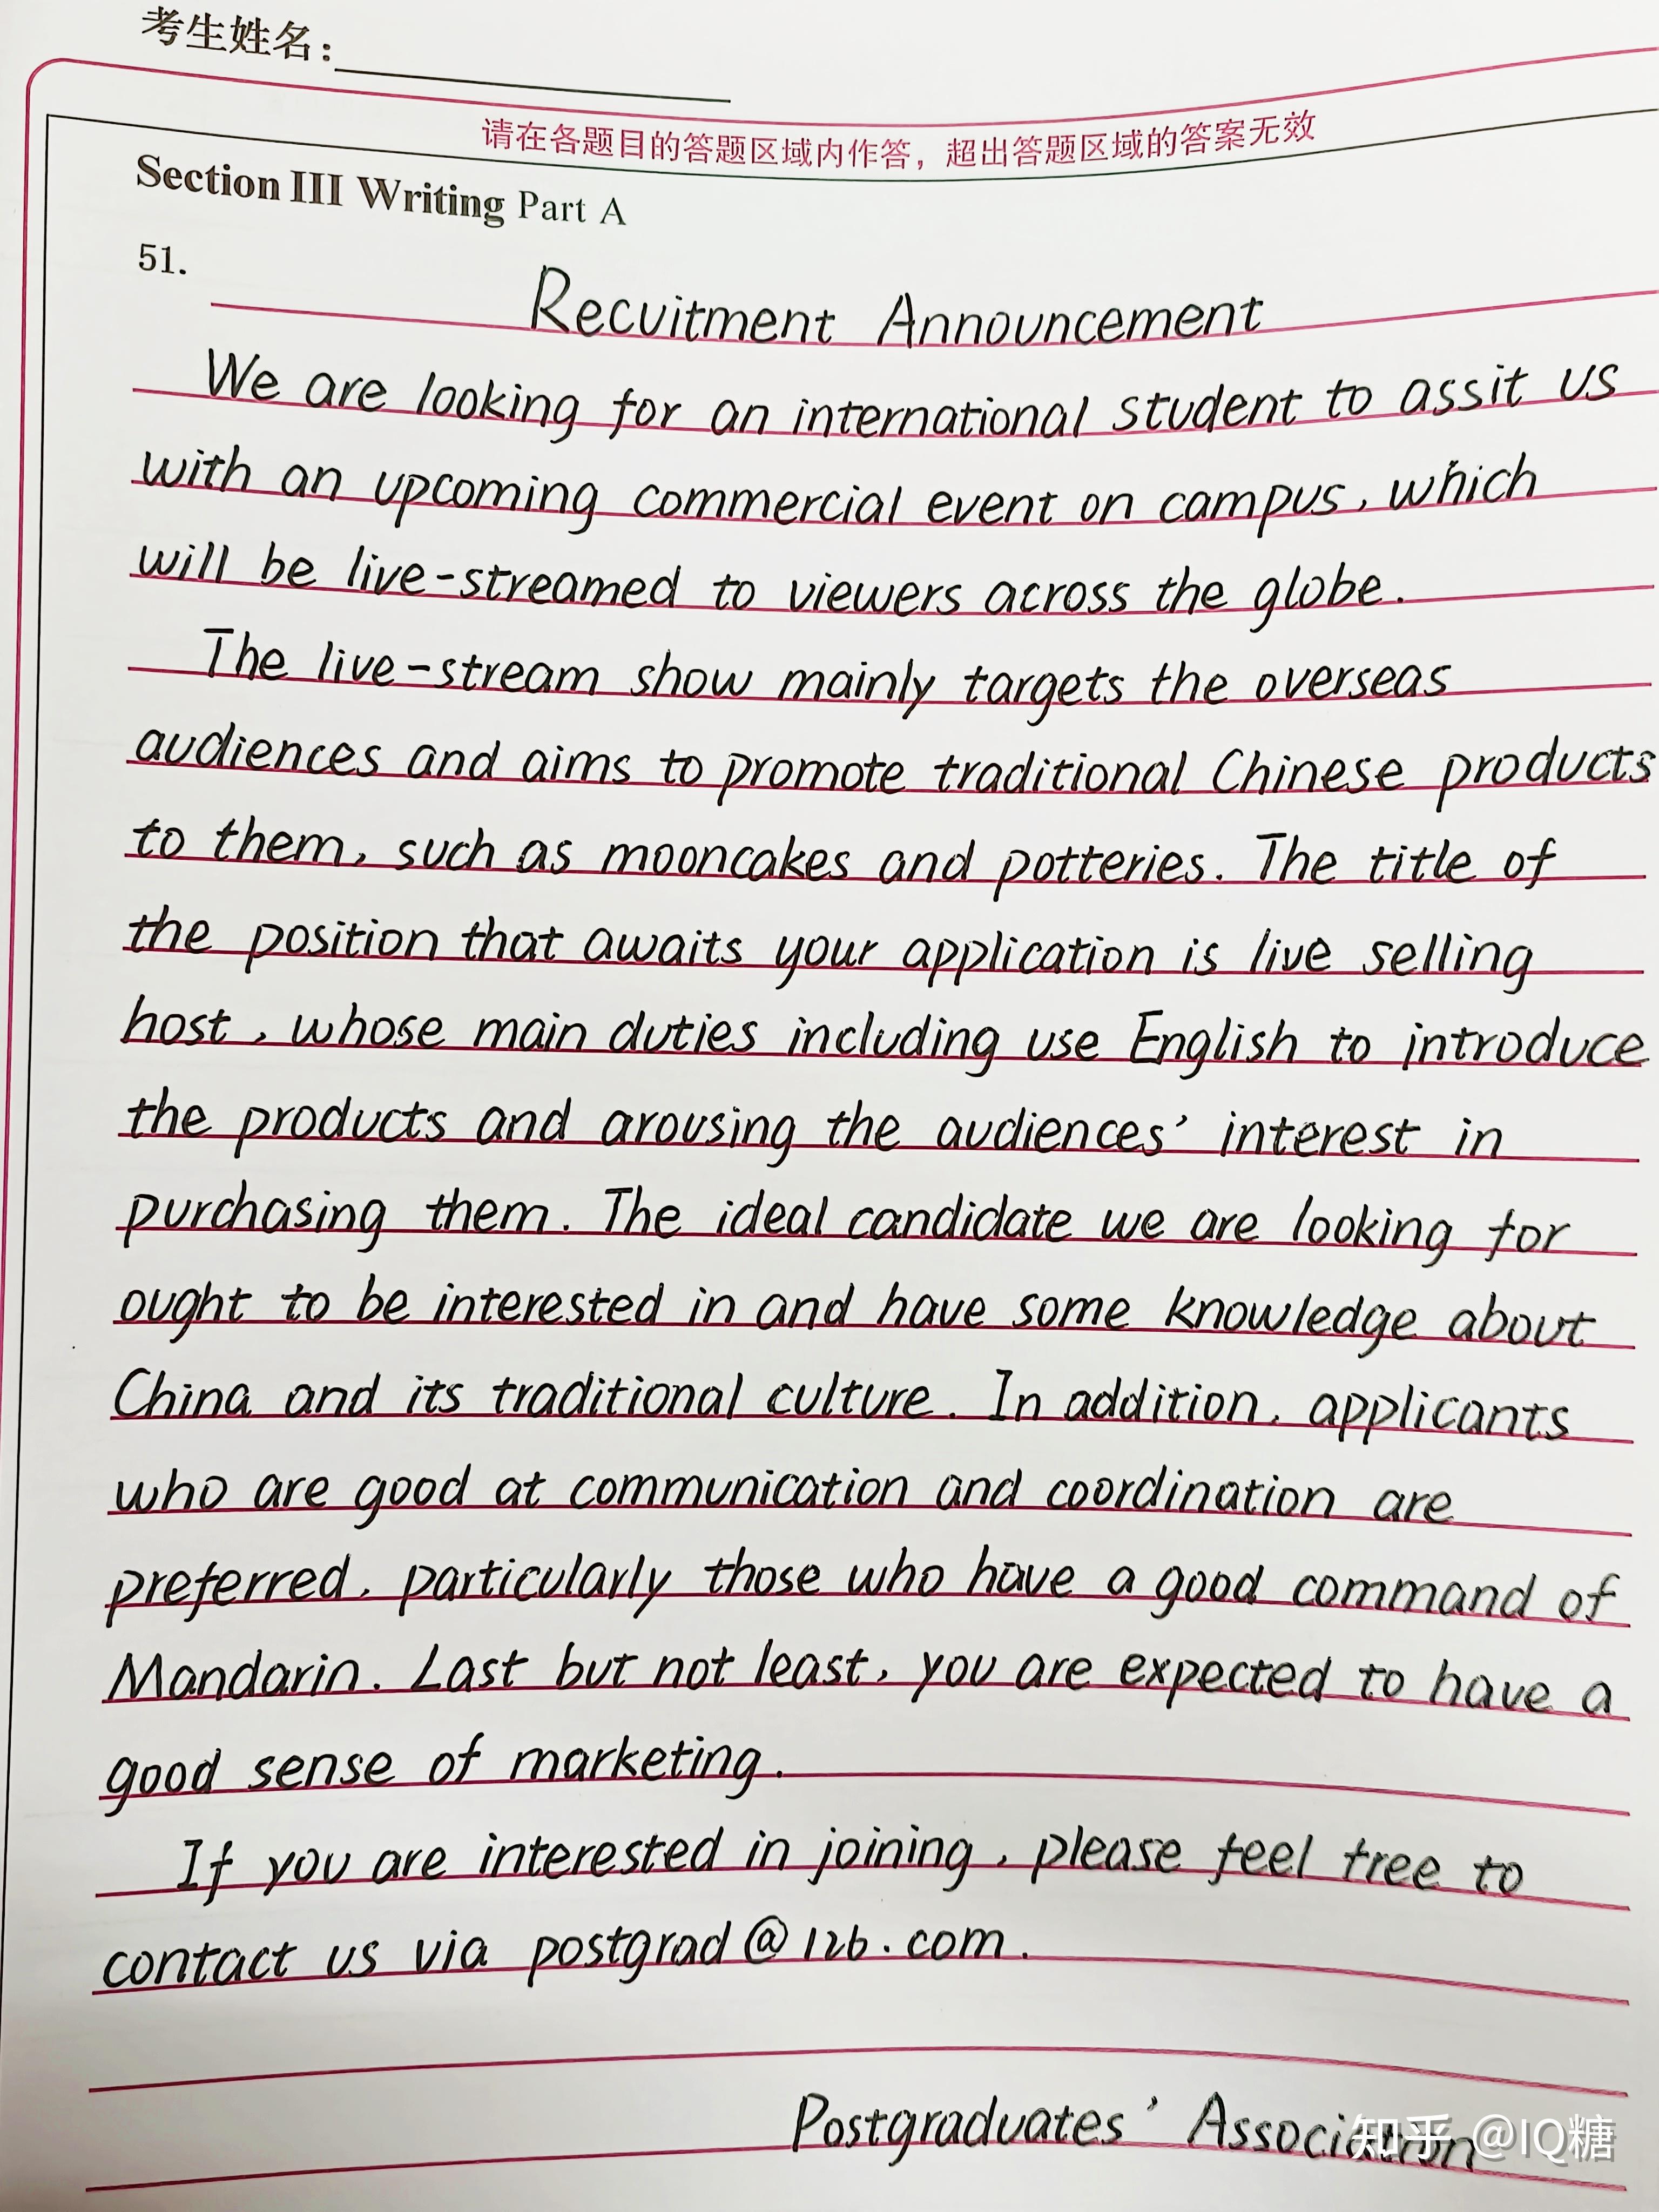 考生姓名:
请在各题目的答题区域内作答，超出答题区域的答案无效
Section III Writing Part A
51.
Recuitment Announcement
We are looking for an international student to assit us
with an upcoming commercial event on campus, which
will be live-streamed to viewers across the globe.
The live-stream show mainly targets the overseas
audiences and aims to promote traditional Chinese products
to them, such as mooncakes and potteries. The title of
the position that awaits your application is live selling
host, whose main duties including use English to introduce
the products and arousing the audiences' interest in
purchasing them. The ideal candidate we are looking for
ought to be interested in and have some knowledge about
China and its traditional culture. In addition, applicants
who are good at communication and coordination are
preferred, particularly those who have a good command of
Mandarin. Last but not least, you are expected to have a
good sense of marketing.
If you are interested in joining, please feel free to
contact us via postgrad@126.com.
Postgraduates' Association
知乎 @IQ糖